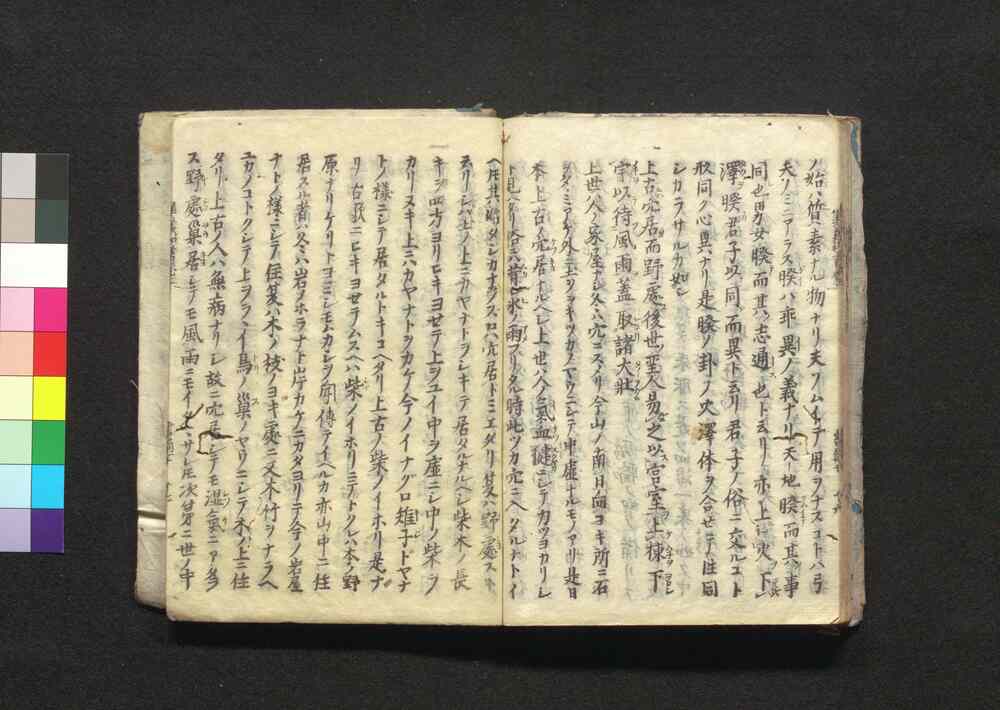 ノ始ハ質素ナル物ナリ夫ノムイテ用ヲナスコトハ弓
矢ノミニアラス睽ハ乖異ノ義ナリ天地睽而其事
同也男女睽而其志通也ト云リ亦上ニ火下ニ
澤ハ睽君子以同而異ト云リ君子ノ俗ニ交ルコト
形同ク心異ナリ是睽ノ卦ノ火澤体ヲ合セテ性同
シカラサルカ如シ
上古穴居而野處後世聖人易之以宮室上棟下
宇以待風雨蓋取諸大壯
上世ハ人ノ家屋ナシ冬ハ穴ニスメリ今山ノ南日向ヨキ所ニ石
ヲタヽミアケ外ニ土ヲツキツカノヤウニシテ中虚ナルモノアリ是日
本上古ノ穴居ナルヘシ上世ハ人氣血健ニシテカツヨカリシ
ト見ヘタリ俗ニ昔氷ノ雨フリタル時此ツカ穴ニ入タルナトイ
ヘ𪜈其時タシカナラス只穴居トミエタリ夏ハ野處スト
云リシハ土ノ上ニカヤナトヲシキテ居タルナルヘシ柴木ノ長
キヲ四方ヨリヒキヨセテ上ヲユイ中ヲ虚ニシ中ノ柴ヲ
カリヌキ上ニハカヤナトヲカケ今ノイナグロ雉子ドヤナ
トノ様ニシテ居タルトキコヘタリ上古ノ柴ノイホリ是ナ
リ古歌ニヒキヨセテムスヘハ柴ノイホリニテトクレハ本ノ野
原ナリケリトヨミシモムカシヲ聞傳テイヘルカ亦山中ニ住
居スル者ハ冬ハ岩ノホラナト片カケニカタヨリテ今ノ岩屋
ナトノ様ニシテ住夏ハ木ノ枝ノヨキ處ニ又木竹ヲナラヘ
ユカノコトクシテ上ヲフイ鳥ノ巣ノヤウニシテ木ノ上ニ住
タリ上古ノ人ハ無病ナリシ故ニ穴居シテモ濕氣ニアタラ
ス野處巣居シテモ風雨ニモイタマサレ𪜈次第ニ世ノ中